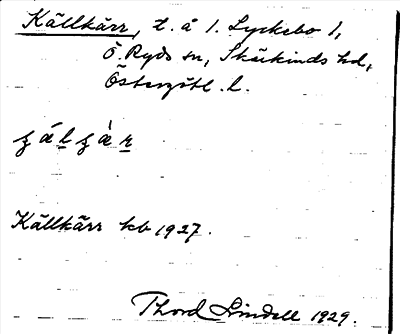 Källkärr, t. å l. Lyckebo 1,
Ö. Ryds sn, Skärkinds hd,
Östergötl. l.
Källkärr kb 1927.
Thord Lindell 1929.